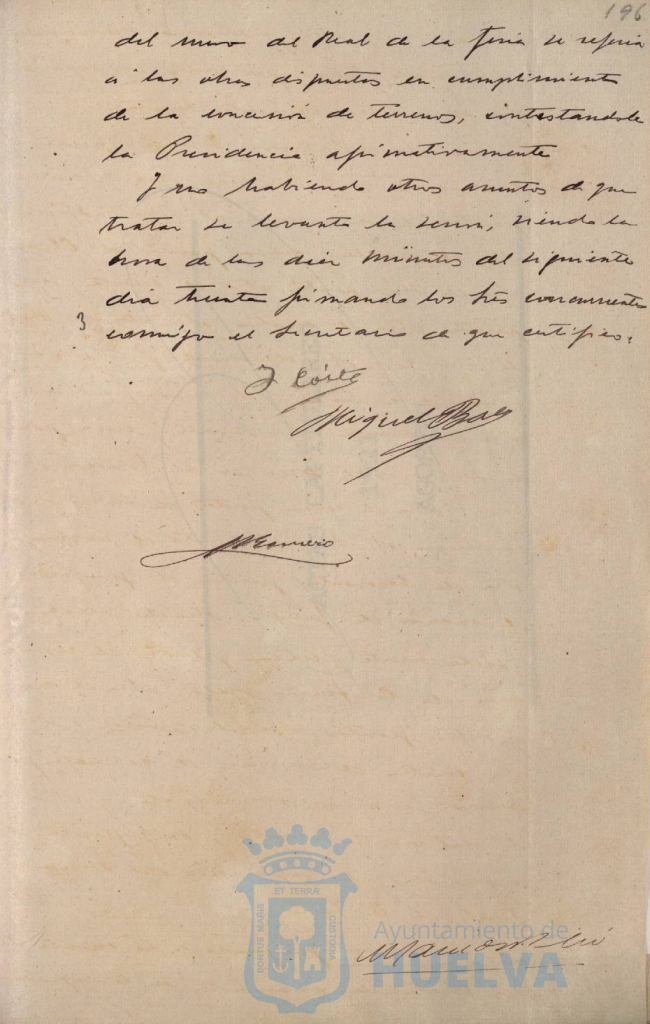 196
del muro del Real de la feria se referia
á las obras dispuestas en cumplimiento
de la concesión de terrenos, contestandole
la Presidencia afirmativamente
Y no habiendo otros asuntos de que
tratar se levanta la sesión, siendo la
hora de las diez minutos del siguiente
dia treinta firmando los tres concurrentes
3
conmigo el Secretario de que certifico.
J Cóst
Miguel Ba
ET TERRÆ
PORTUS MARIS
CUSTODIA
Ayuntamiento de
HUELVA